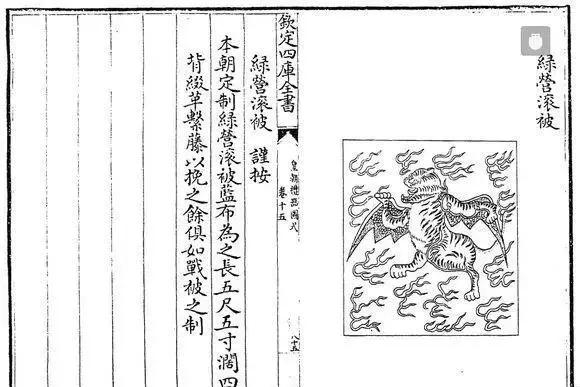 綠營滚被
欽定四庫全書
皇朝禮器圖式
卷十五
綠營滚被 謹按
本朝定制綠營滚被藍布為之長五尺五寸濶四
背綴革繫藤以挽之餘俱如戰被之制